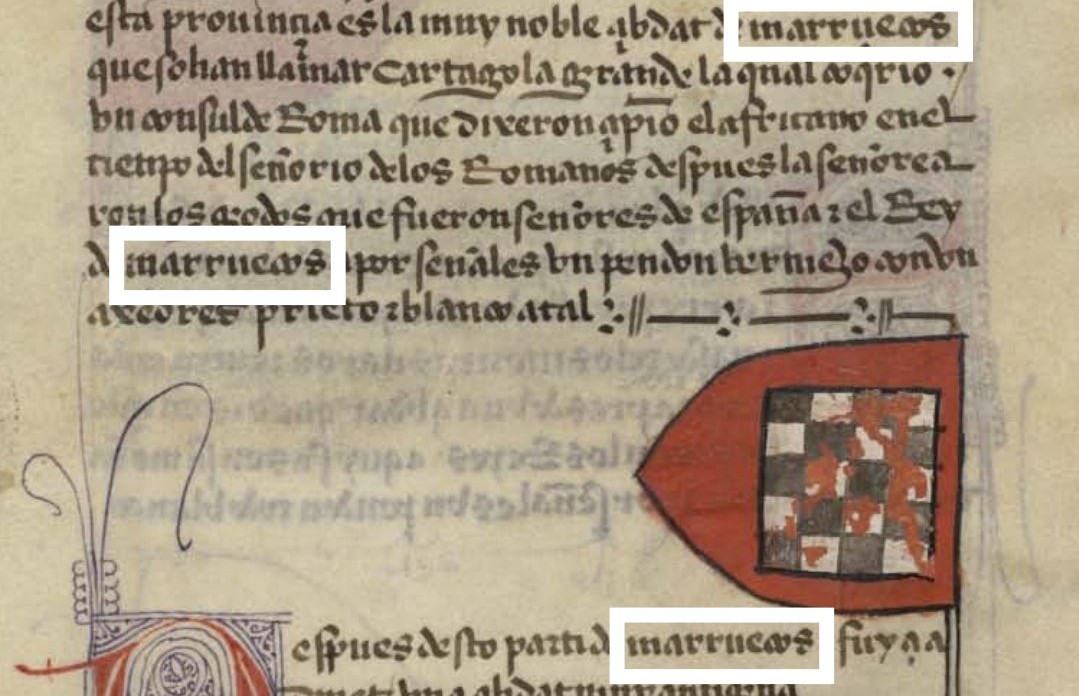 esta prouinçia es la muy noble çibdat de marruecos
que sohan llamar cartago la grande la qual conqrio
vn consul de Roma que dixeron çipio el africano en el
tienpo del señorio delos Romanos despues la señorea
ron los godos que fueron señores de españa z el Rey
de marruecos a por señales vn pendon bermejo con vn
axedres prieto z blanco atal
espues desto parti de marruecos fuy a la